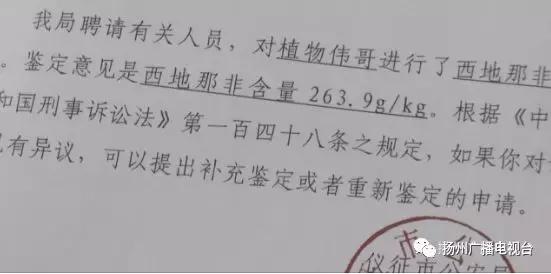 我局聘请有关人员，对植物伟哥进行了西地那非
。鉴定意见是西地那非含量 263.9g/kg。根据《中
和国刑事诉讼法》第一百四十八条之规定，如果你对
有异议，可以提出补充鉴定或者重新鉴定的申请。
市公
仪征市公安局
扬州广播电视台